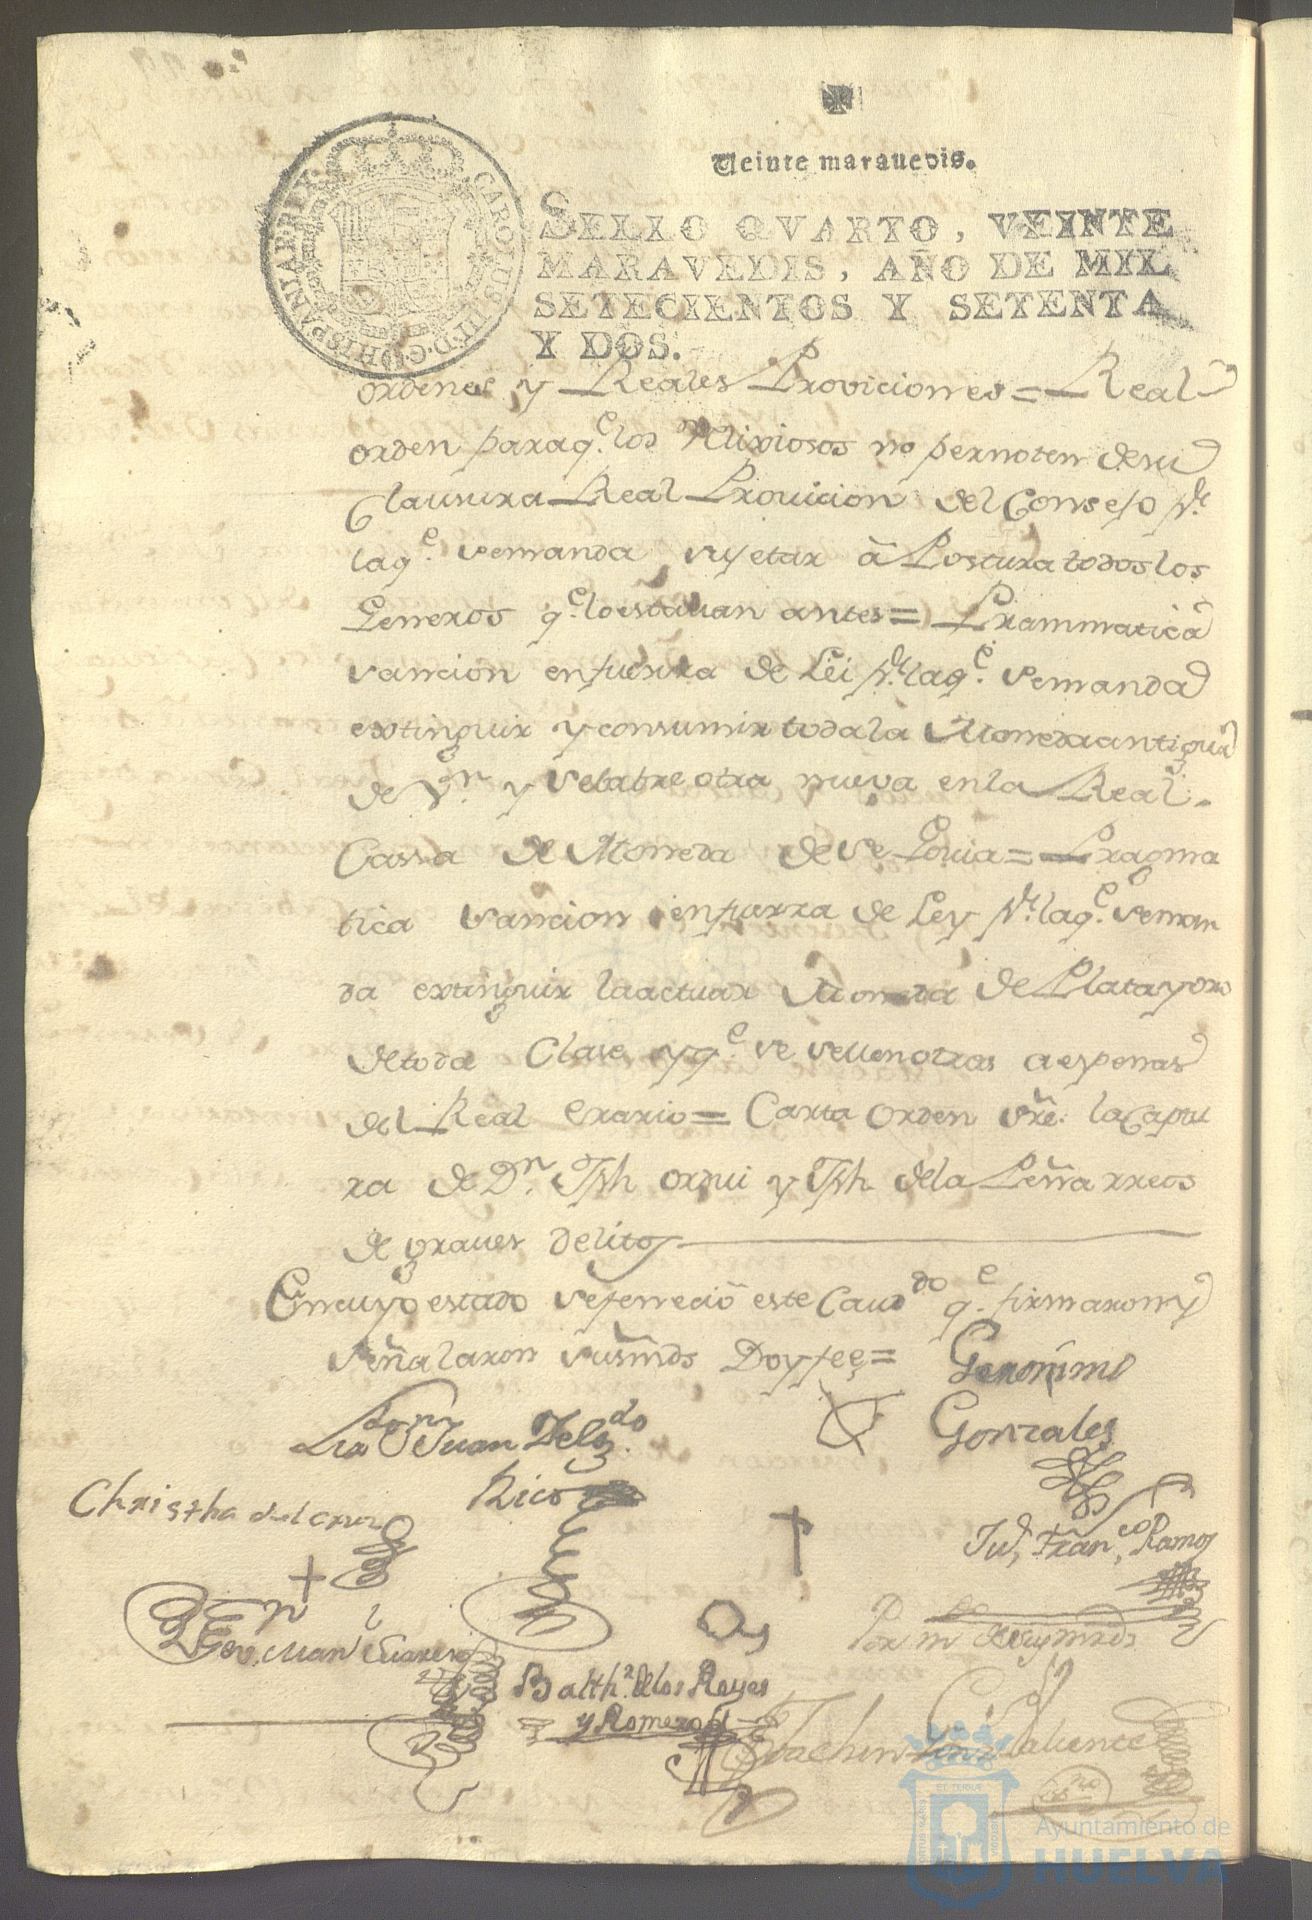 Veinte marauedis.
SELLO QVARTO, VEINTE
MARAVEDIS, AÑO DE MIL
SETECIENTOS Y SETENTA
Y DOS.
CAROLUS III D.G. HISPANIAR REX
ordenes y Reales Proviciones = Real
orden paraq.e los Relixiosos no pernoten desu
Clausura Real Prouicion del Consejo pr.
laq.e semanda sujetar â Postura todos los
Generos q.e loestauan antes = Prammatica
sancion enfuersa de Lei pr. laq.e semanda
extinguir y consumir todala Moneda antigua
de V.n y selabre otra nueva enla Real
Cassa de Moneda de Segouia = Pragma
tica sancion enfuerza de Ley pr. laq.e seman
da extinguir laactual Moneda de Plata y oro
detoda Clase yq.e se sellen otras aespensas
del Real Erario = Carta Orden sre. la Captu
ra de D.n Jph y Jph dela Peña rreos
de graues delitos
En cuyo estado sefenecio este Cau.do q.e firmaron y
señalaron susmds Doyfee =
Geronimo
Gonzales
Juan Delg.do
Rico
Christha del cruz
Fran.co Ramos
Man.l Suares
Por m
Balth.r delos Reyes
y Romero
Joachin Valiente
Ayuntamiento de
HUELVA